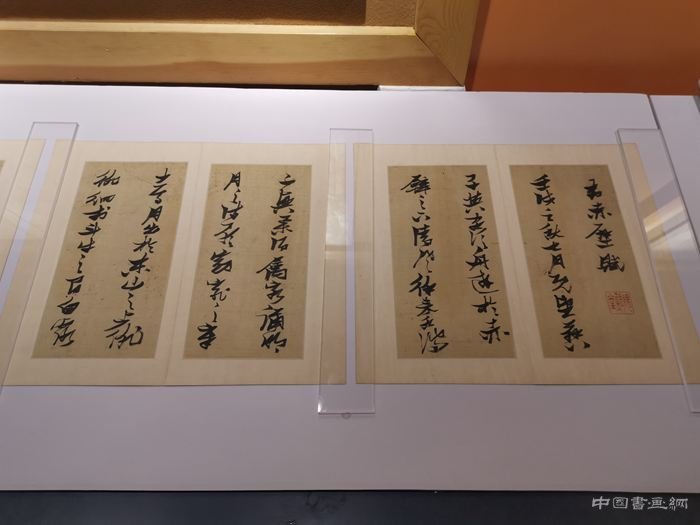 前赤壁賦
壬戌之秋七月既望蘇
子與客泛舟遊於赤
壁之下清風徐來水波
不興舉酒屬客誦明
月之詩歌窈窕之章
少焉月出於東山之上徘
徊於斗牛之間白露
中国書画網